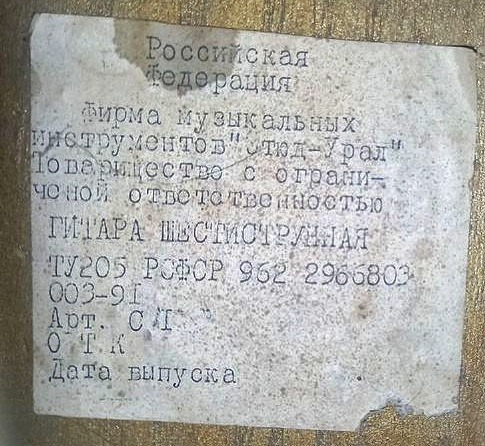 Российская
Федерация
Фирма музыкальных
инструментов "Этюд-Урал"
Товарищество с ограни-
ченой ответственностью
ГИТАРА ШЕСТИСТРУННАЯ
ТУ205 РСФСР 962 2966803
003-91
Арт.
О Т К
Дата выпуска